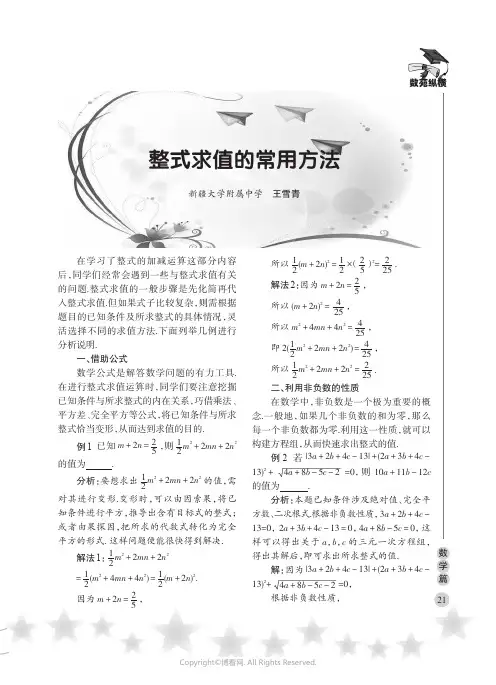 数苑纵横
整式求值的常用方法
新疆大学附属中学 王雪青
在学习了整式的加减运算这部分内容
后,同学们经常会遇到一些与整式求值有关
的问题.整式求值的一般步骤是先化简再代
入整式求值.但如果式子比较复杂,则需根据
题目的已知条件及所求整式的具体情况,灵
活选择不同的求值方法.下面列举几例进行
分析说明.
一、借助公式
数学公式是解答数学问题的有力工具.
在进行整式求值运算时,同学们要注意挖掘
已知条件与所求整式的内在关系,巧借乘法、
平方差、完全平方等公式,将已知条件与所求
整式恰当变形,从而达到求值的目的.
例1 已知 m+2n=2/5,则 1/2m²+2mn+2n²
的值为____.
分析:要想求出 1/2m²+2mn+2n² 的值,需
对其进行变形.变形时,可以由因索果,将已
知条件进行平方,推导出含有目标式的整式;
或者由果探因,把所求的代数式转化为完全
平方的形式.这样问题便能很快得到解决.
解法1:1/2m²+2mn+2n²
=1/2(m²+4mn+4n²)=1/2(m+2n)².
因为 m+2n=2/5,
所以 1/2(m+2n)²=1/2×(2/5)²=2/25.
解法2:因为 m+2n=2/5,
所以 (m+2n)²=4/25,
所以 m²+4mn+4n²=4/25,
即 2(1/2m²+2mn+2n²)=4/25,
所以 1/2m²+2mn+2n²=2/25.
二、利用非负数的性质
在数学中,非负数是一个极为重要的概
念.一般地,如果几个非负数的和为零,那么
每一个非负数都为零.利用这一性质,就可以
构建方程组,从而快速求出整式的值.
例2 若 |3a+2b+4c-13|+(2a+3b+4c-
13)²+√(4a+8b-5c-2)=0,则 10a+11b-12c
的值为____.
分析:本题已知条件涉及绝对值、完全平
方数、二次根式.根据非负数性质,3a+2b+4c-
13=0, 2a+3b+4c-13=0, 4a+8b-5c=0, 这
样可以得出关于 a,b,c 的三元一次方程组,
得出其解后,即可求出所求整式的值.
解:因为 |3a+2b+4c-13|+(2a+3b+4c-
13)²+√(4a+8b-5c-2)=0,
根据非负数性质,
数
学
篇
21
Copyright©博看网. All Rights Reserved.